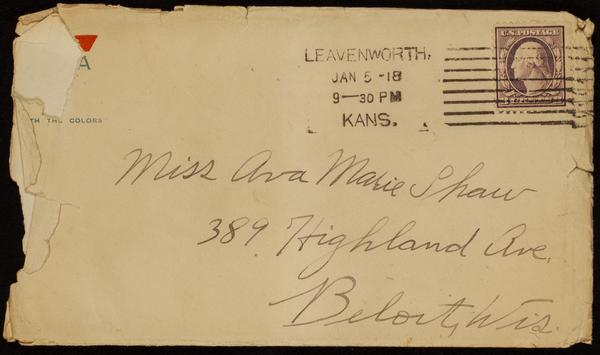 LEAVENWORTH,
JAN 5-18
9-30 PM
KANS.
U.S. POSTAGE
A
TH THE COLORS"
Miss Ava Marie Shaw
389 Highland Ave.
Beloit, Wis.